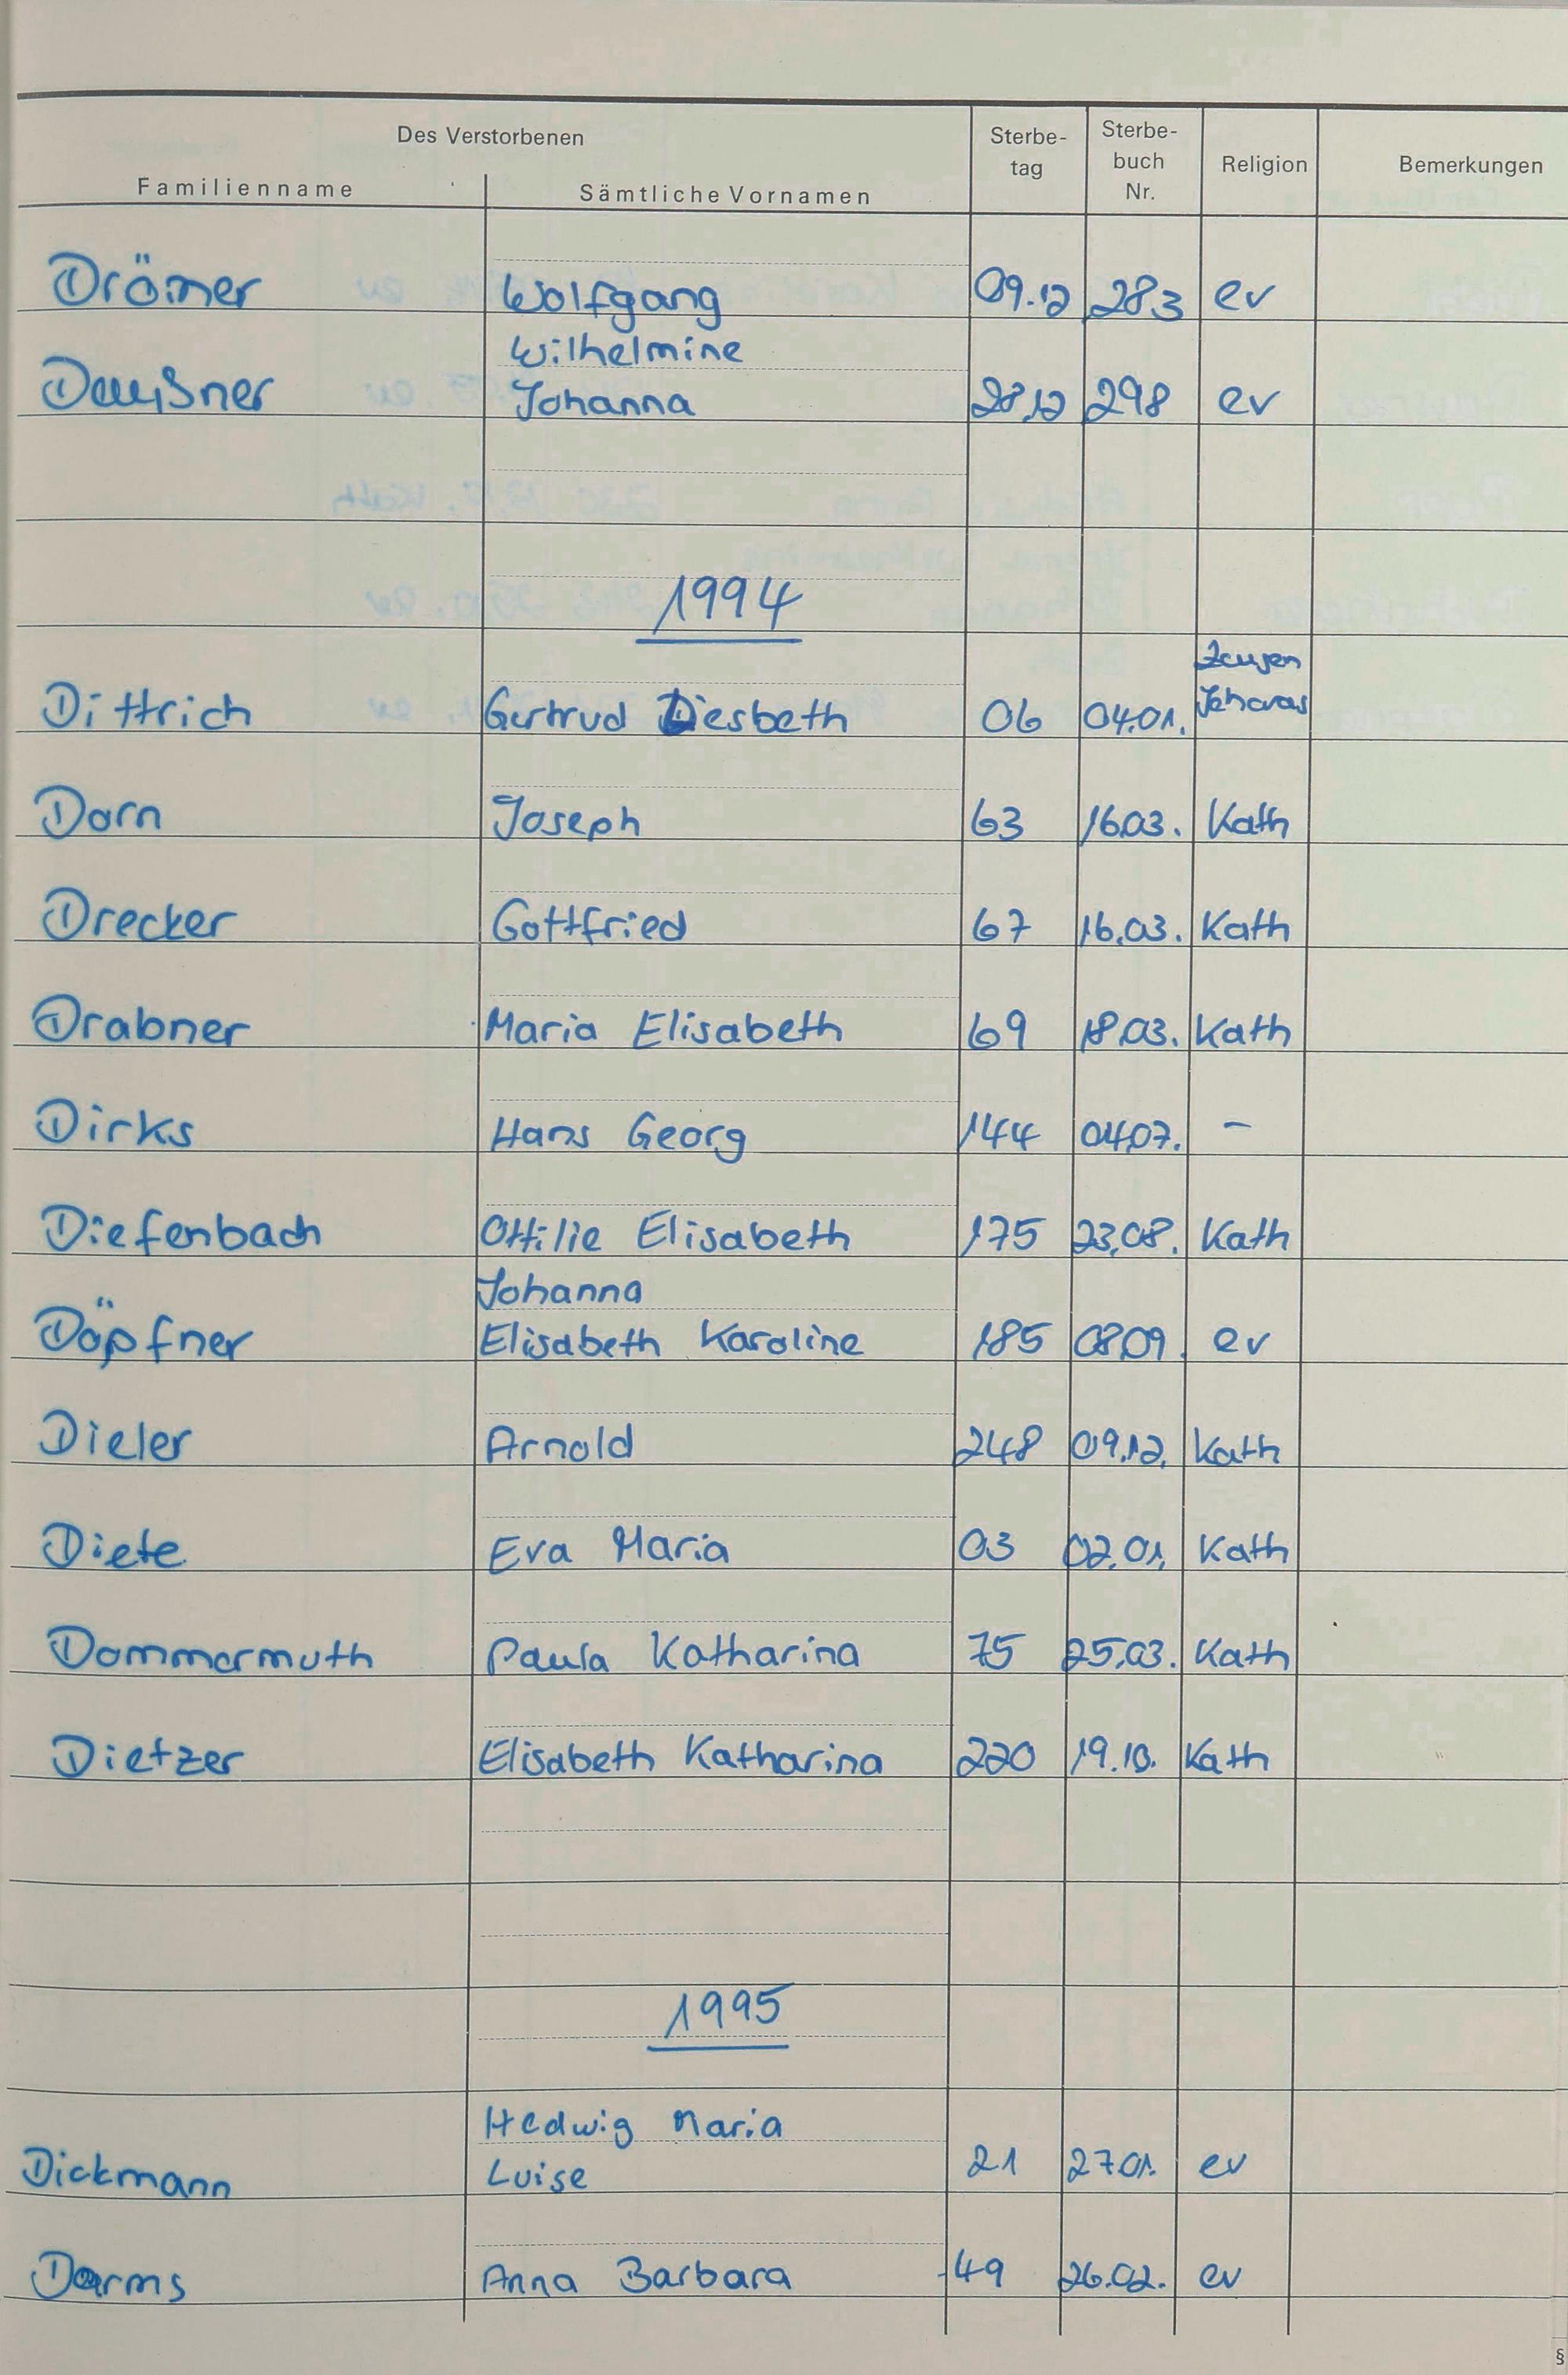 Des Verstorbenen
Familienname Sämtliche Vornamen Sterbe-tag Sterbe-buch Nr. Religion Bemerkungen
Drömer Wolfgang 09.12 283 ev
Wilhelmine
Daußner Johanna 28.12 298 ev
1994
Zeugen
Dittrich Gertrud Liesbeth 06 04.01. Jehovas
Dorn Joseph 63 16.03. Kath
Drecker Gottfried 67 16.03. Kath
Drabner Maria Elisabeth 69 18.03. Kath
Dirks Hans Georg 144 04.07. –
Diefenbach Ottilie Elisabeth 175 23.08. Kath
Johanna
Döpfner Elisabeth Karoline 185 08.09. ev
Dieler Arnold 248 09.12. Kath
Diete Eva Maria 03 02.01. Kath
Dommermuth Paula Katharina 75 25.03. Kath
Dietzer Elisabeth Katharina 220 19.10. Kath
1995
Hedwig Maria
Dickmann Luise 21 27.01. ev
Darms Anna Barbara 49 26.02. ev
§